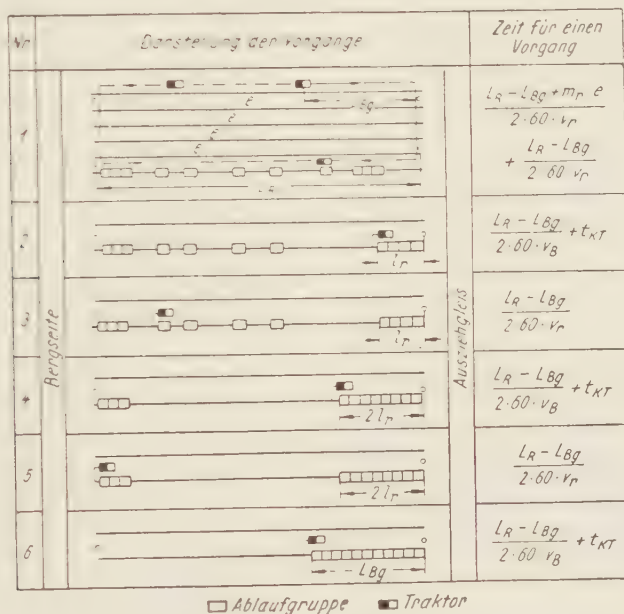 Nr
Darstellung der Vorgänge
Zeit für einen
Vorgang
Bergseite
Ausziehgleis
1
e
e
e
e
L_R
L_R – L_Bg + m_r e
2·60·v_r
+ L_R – L_Bg
2 60 v_r
2
l_r
L_R – L_Bg
2·60·v_B
+ t_KT
3
l_r
L_R – L_Bg
2·60·v_r
4
2 l_r
L_R – L_Bg
2·60·v_B
+ t_KT
5
2 l_r
L_R – L_Bg
2·60·v_r
6
L_Bg
L_R – L_Bg
2·60 v_B
+ t_KT
Ablaufgruppe
Traktor